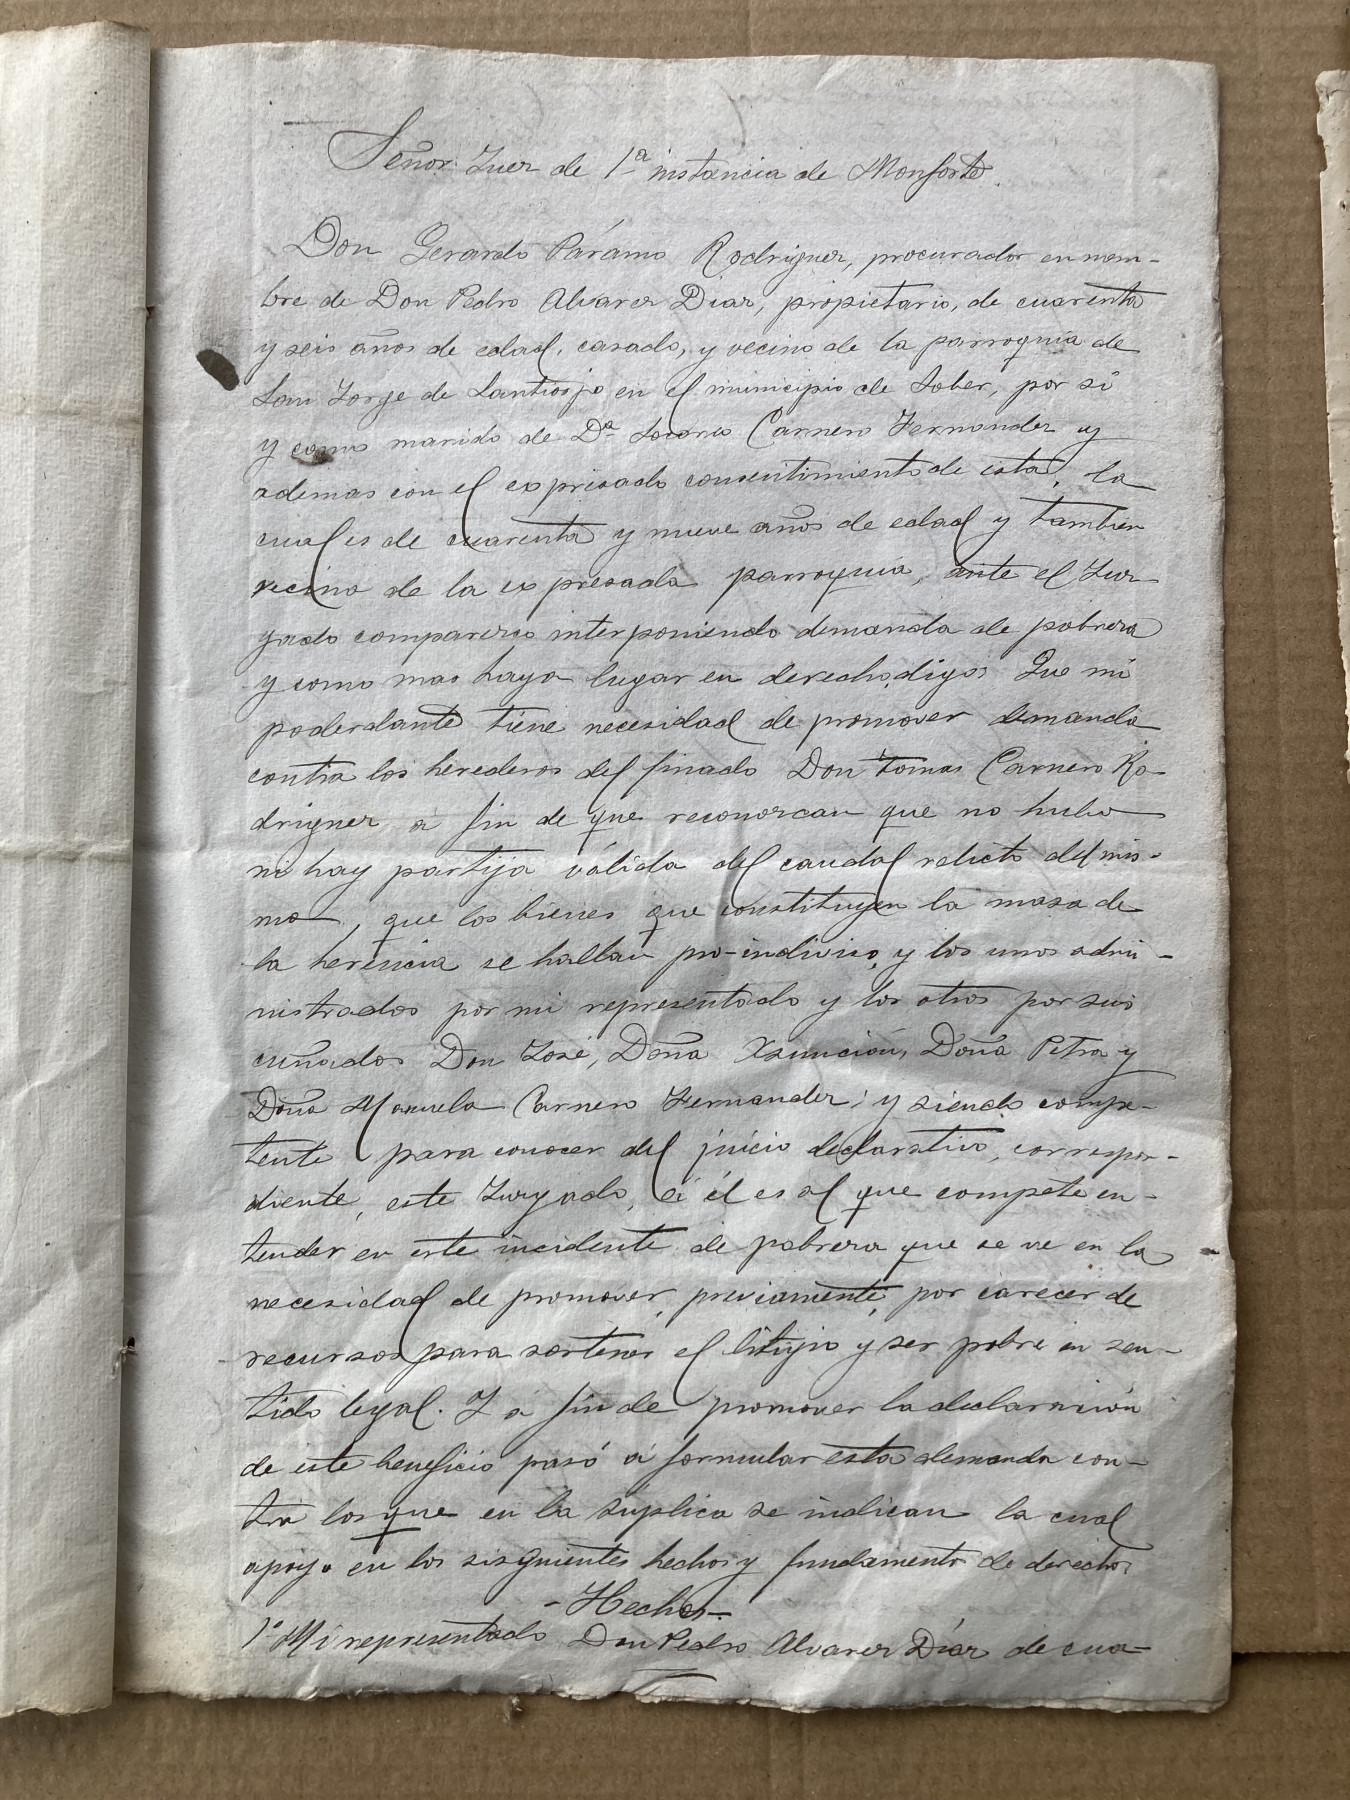 Señor Juez de 1ª instancia de Monforte.
Don Gerardo Páramo Rodriguez, procurador en nom-
bre de Don Pedro Alvarez Diaz, propietario, de cuarenta
y seis años de edad, casado, y vecino de la parroquia de
San Jorge de Santiorjo en el municipio de Sober, por sí
y como marido de Dª Socorro Carnero Fernandez y
ademas con el expresado consentimiento de esta, la
cual es de cuarenta y nueve años de edad y tambien
vecina de la expresada parroquia, ante el Juz-
gado comparezco interponiendo demanda de pobreza
y como mas haya lugar en derecho, digo: Que mi
poderdante tiene necesidad de promover demanda
contra los herederos del finado Don Tomas Carnero Ro-
driguez a fin de que reconozcan que no hubo
ni hay partija válida del caudal relicto del mis-
mo, que los bienes que constituyen la masa de
la herencia se hallan pro-indiviso, y los unos admi-
nistrados por mi representado y los otros por sus
cuñados Don José, Doña Asunción, Doña Petra y
Doña Manuela Carnero Fernandez; y siendo compe-
tente para conocer del juicio declarativo, correspon-
diente, este Juzgado, á él es al que compete en-
tender en este incidente de pobreza que se ve en la
necesidad de promover, previamente, por carecer de
recursos para sostener el litigio y ser pobre en sen-
tido legal. Y a fin de promover la declaración
de este beneficio pasó á formular esta demanda con-
tra los que en la súplica se indican la cual
apoyo en los sisguientes hechos y fundamentos de derecho:
- Hechos -
1º Mi representado Don Pedro Alvarez Díaz de cua-